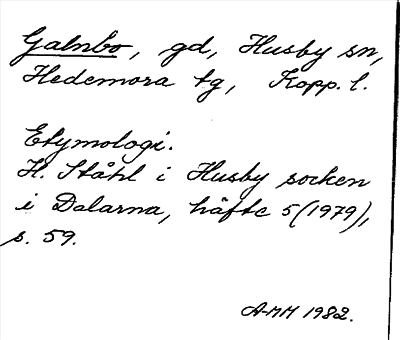 Galnbo, gd, Husby sn,
Hedemora tg, Kopp. l.
Etymologi.
H. Ståhl i Husby socken
i Dalarna, häfte 5 (1979),
s. 59.
AMM 1982.